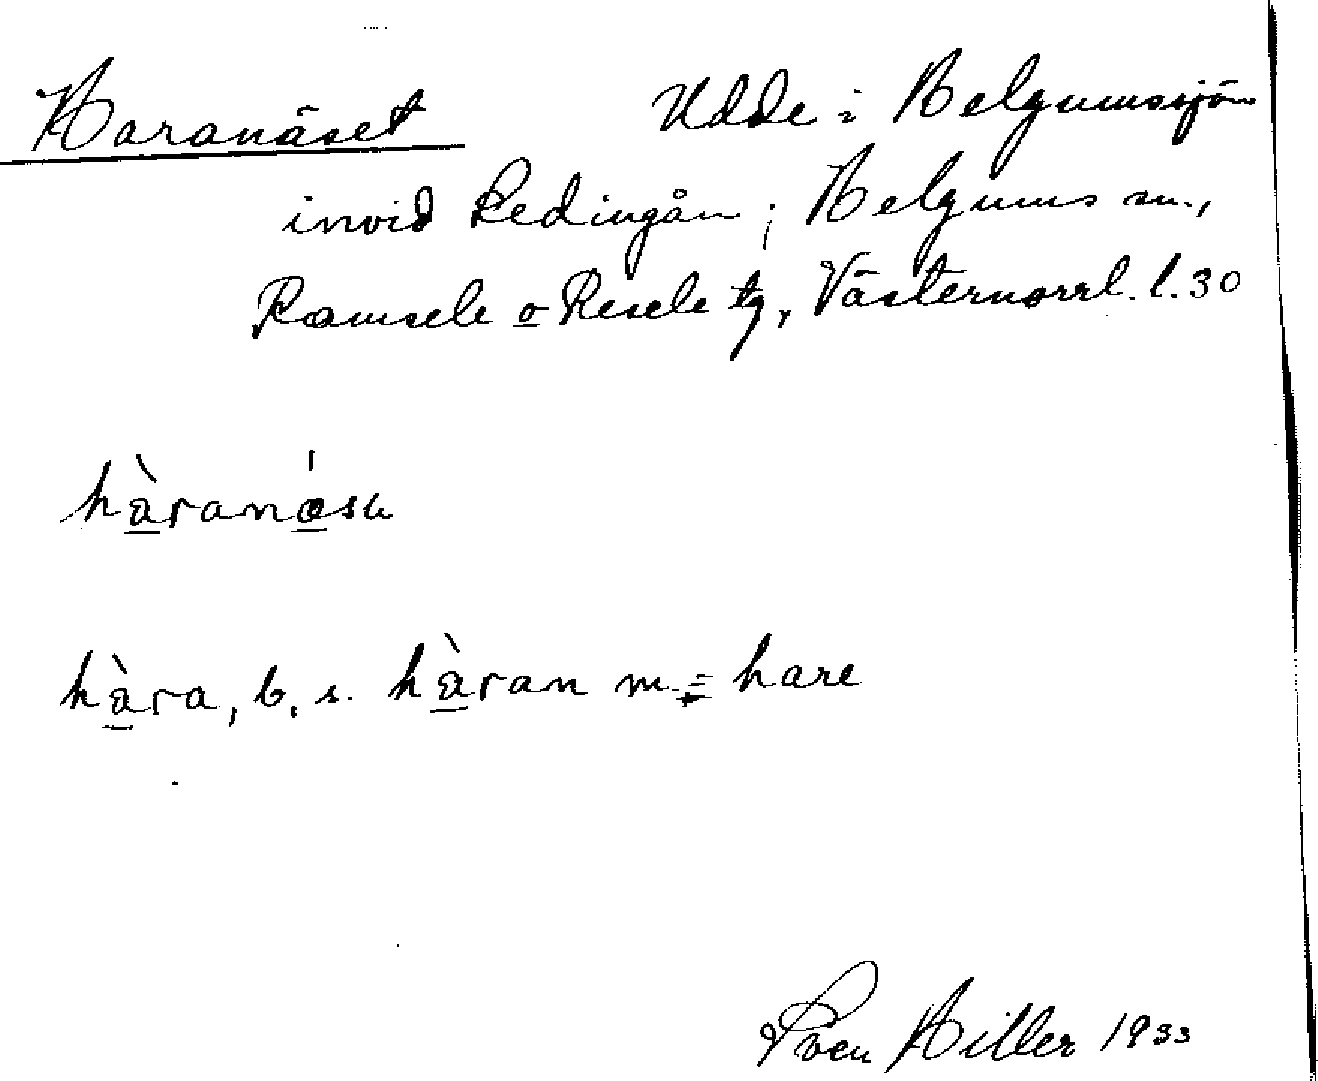 Haranäset Udde i Helgumssjön
invid Ledingån; Helgums sn.,
Ramsele o Resele tg, Västernorrl. l. 30
hàra, b. s. hàran m. = hare
Sven Hiller 1933